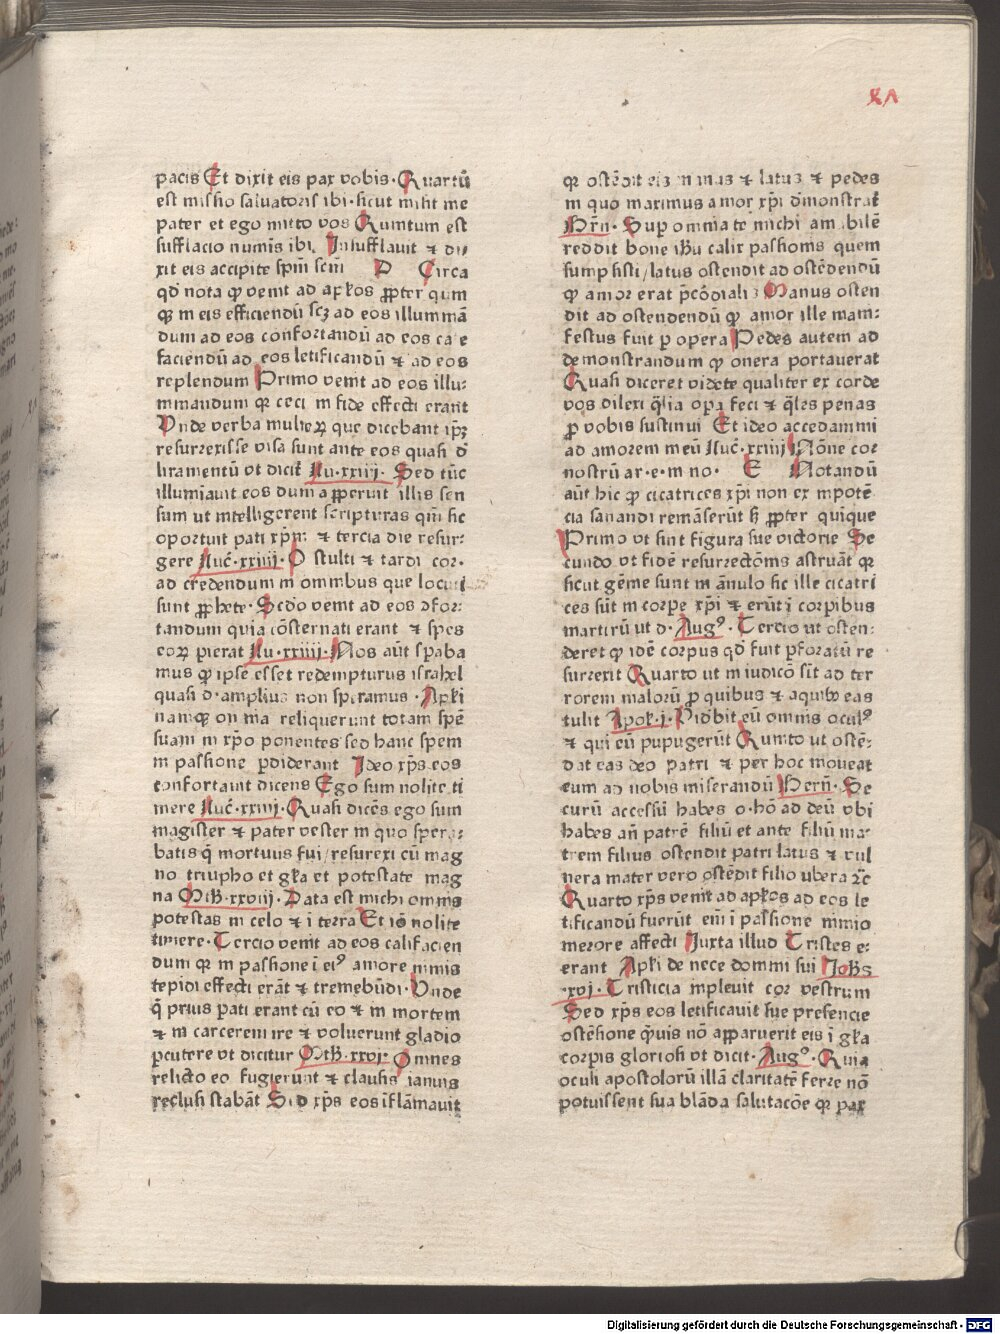 xv
pacis Et dixit eis pax vobis · Quartū
est missio saluatoris ibi · sicut misit me
pater et ego mitto vos Quintum est
sufflacio numinis ibi, Insufflauit ⁊ di-
xit eis accipite spm̄ scm̄ D Circa
qd̄ nota ꝙ venit ad apl̄os ꝓpter quin
qꝫ in eis efficiendū scꝫ ad eos illuminā
dum ad eos confortandū ad eos cale
faciendū ad eos letificandū ⁊ ad eos
replendum Primo venit ad eos illu-
minandum qꝫ ceci in fide effecti erant
Unde verba mulieꝝ que dicebant ip̄ꝫ
resurrexisse visa sunt ante eos quasi d̄
liramentū vt dicit̄ Lu·xxiiij· Sed tūc
illuminauit eos dum apperuit illis sen
sum ut intelligerent scripturas qm̄ sic
oportuit pati xp̄m ⁊ tercia die resur-
gere Luc̄·xxiiij· O stulti ⁊ tardi cor·
ad credendum in omnibus que locuti
sunt ꝓphete · Scd̄o venit ad eos ↄfor-
tandum quia cōsternati erant ⁊ spes
eoꝝ pierat Lu·xxiiij· Nos aūt spaba
mus ꝙ ipse esset redempturus israhel
quasi d· amplius non speramus · Apl̄i
namqꝫ omnia reliquerunt totam spē
suam in xp̄o ponentes sed hanc spem
in passione ꝑdiderant Ideo xp̄s eos
confortauit dicens Ego sum nolite ti
mere Luc̄·xxiiij· Quasi dicēs ego sum
magister ⁊ pater vester in quo spera-
batis q̄ mortuus fui / resurexi cū mag
no triupho et gl̄ia et potestate mag
na Mth̄·xxviij· Data est michi omnis
potestas in celo ⁊ ī terra Et iō nolite
timere · Tercio venit ad eos calefacien
dum qꝫ in passione ī eiꝰ amore nimis
tepidi effecti erāt ⁊ tremebūdi · Unde
q̄ prius pati erant cū eo ⁊ in mortem
⁊ in carcerem ire ⁊ voluerunt gladio
ꝑcutere vt dicitur Mth̄·xxvj· Omnes
relicto eo fugierunt ⁊ clausis ianuis
reclusi stabāt Sed xp̄s eos īflāmauit
qꝫ ostēdit eis manus ⁊ latus ⁊ pedes
in quo maximus amor xp̄i dmonstrat̄
Brn̄· Sup omnia te michi amabilē
reddit bone ihū calix passionis quem
sumpsisti / latus ostendit ad ostēdendū
ꝙ amor erat p̄cōdialis Manus osten
dit ad ostendendū ꝙ amor ille mani-
festus fuit ꝑ opera Pedes autem ad
demonstrandum ꝙ onera portauerat
Quasi diceret videte qualiter ex corde
vos dilexi q̄lia oꝑa feci ⁊ q̄les penas
ꝑ vobis sustinui Et ideo accedamini
ad amorem meū Luc̄·xxiiij Nōne cor
nostrū ar·e·in no· E Notandū
aūt hic ꝙ cicatrices xp̄i non ex inpotē
cia sanandi remāserūt sꝫ ꝓpter quinque
Primo vt sint figura sue victorie Se
cundo vt fidē resurrectōnis astruāt qꝫ
sicut gēme sunt in ānulo sic ille cicatri
ces sūt in corꝑe xp̄i ⁊ erūt ī corpibus
martirū ut d· Augꝰ· Tercio ut osten-
deret ꝙ idē corpus qd̄ fuit ꝑforatū re
surrexit Quarto ut in iudicō sīt ad ter
rorem malorū ꝓ quibus ⁊ a quibꝰ eas
tulit Apok·j· Uidebit eū omnis oculꝰ
⁊ qui eū pupugerūt Quinto ut ostē-
dat eas deo patri ⁊ per hoc moueat
eum ad nobis miserandū Bern̄· Se
curū accessū habes o·hō ad deū vbi
habes an̄ patrē filiū et ante filiū ma-
trem filius ostendit patri latus ⁊ vul
nera mater vero ostēdit filio ubera ⁊c̄
Quarto xp̄s venit ad apl̄os ad eos le
tificandū fuerūt em̄ ī passione nimio
merore affecti Juxta illud Tristes e-
erant Apl̄i de nece domini sui Joh̄s
·xvj· Tristicia inpleuit cor vestrum
Sed xp̄s eos letificauit sue presencie
ostēsione q̄uis nō apparuerit eis ī gl̄ia
corpis gloriosi vt dicit· Augꝰ· Quia
oculi apostolorū illā claritatē ferre nō
potuissent sua blāda salutacōe qꝫ pax
Digitalisierung gefördert durch die Deutsche Forschungsgemeinschaft - DFG